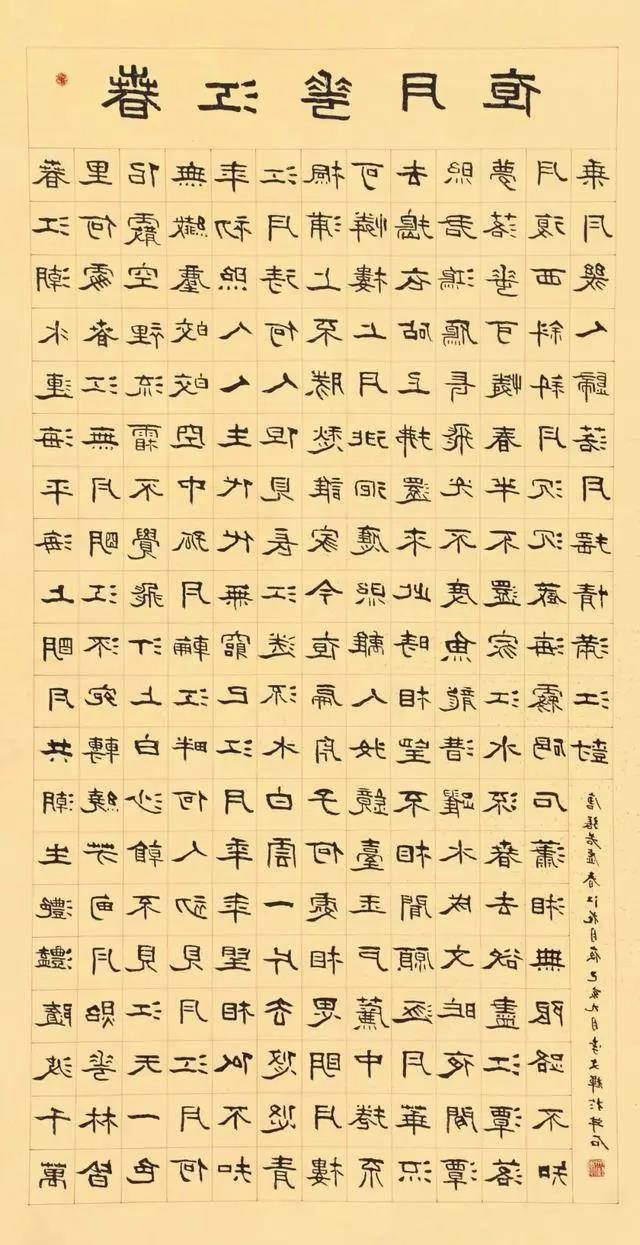 春江花月夜
春江潮水連海平海上明月共潮生灩灩隨波千萬
里何處春江無月明江流宛轉繞芳甸月照花林皆
似霰空裡流霜不覺飛汀上白沙看不見江天一色
無纖塵皎皎空中孤月輪江畔何人初見月江月何
年初照人人生代代無窮已江月年年望相似不知
江月待何人但見長江送流水白雲一片去悠悠青
楓浦上不勝愁誰家今夜扁舟子何處相思明月樓
可憐樓上月徘徊應照離人妝鏡臺玉戶簾中捲不
去搗衣砧上拂還來此時相望不相聞願逐月華流
照君鴻雁長飛光不度魚龍潛躍水成文昨夜閑潭
夢落花可憐春半不還家江水流春去欲盡江潭落
月復西斜斜月沉沉藏海霧碣石瀟湘無限路不知
乘月幾人歸落月搖情滿江樹
唐張若虛春江花月夜己亥九月李文輝於坪石